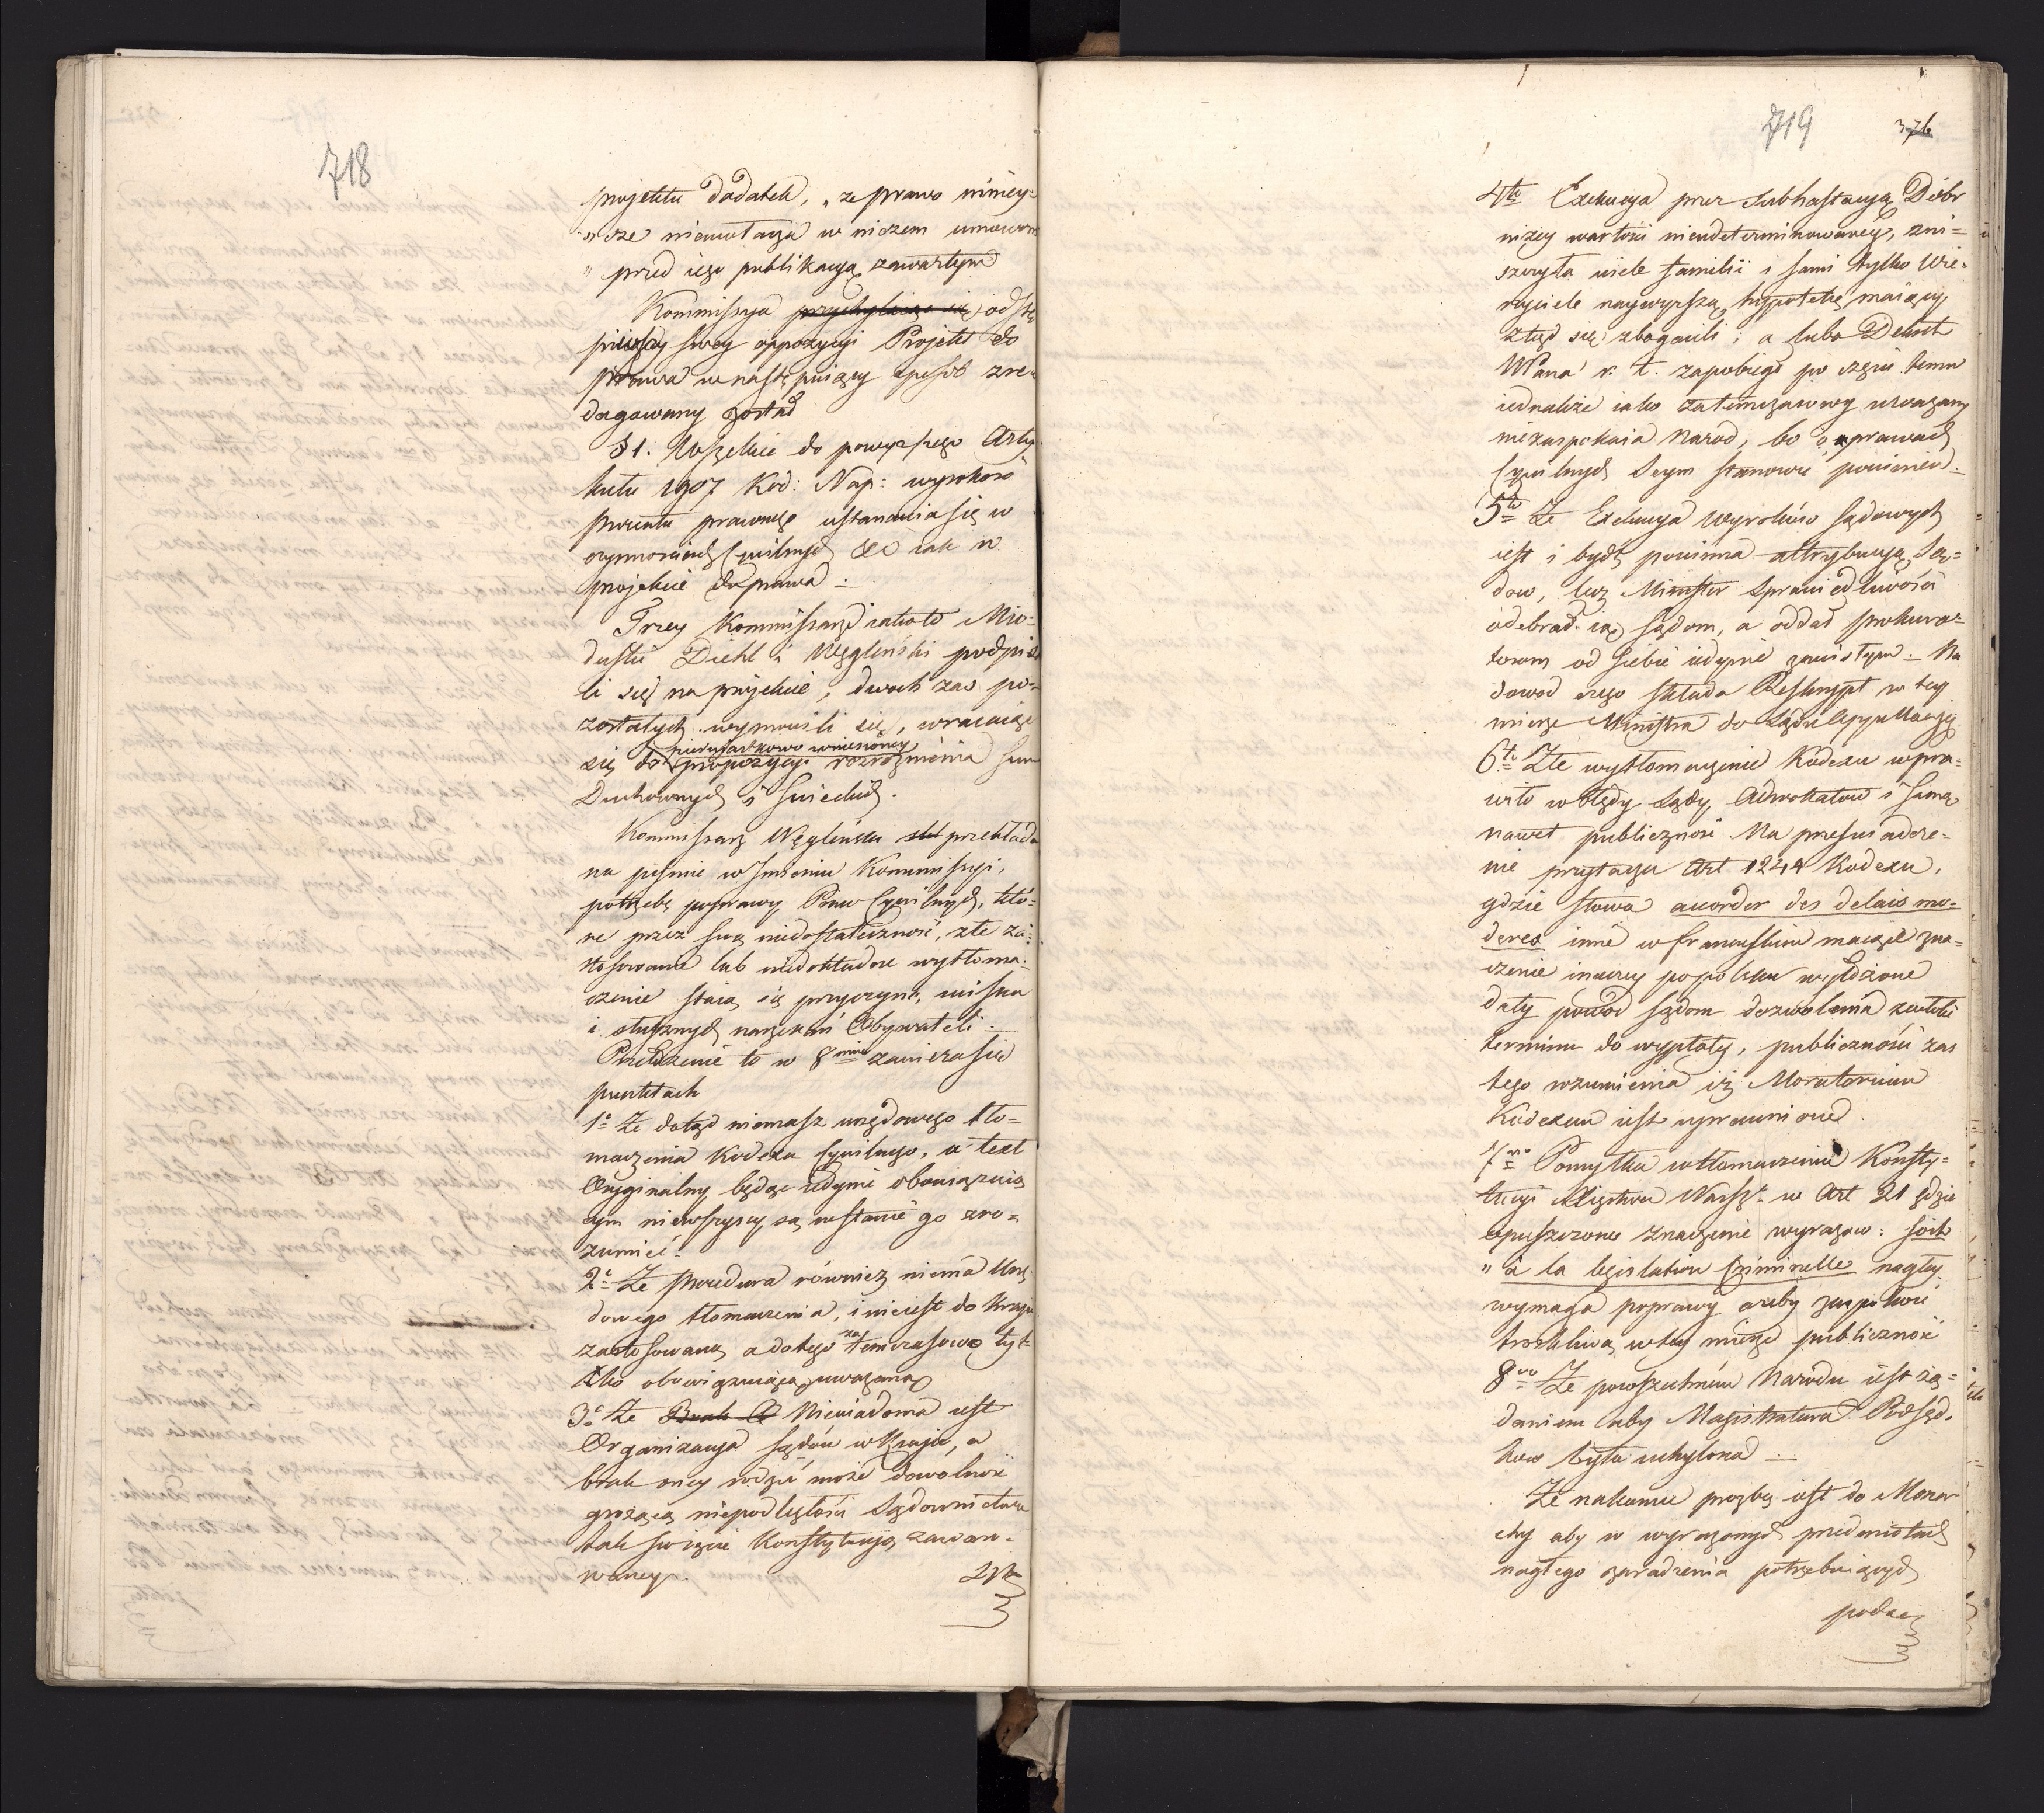 718
projektu dodatek, „że prawo niniey=
„sze nieuwłacza w niczem umowom
„przed iego publikacyą zawartym
Kommissya przychylaiąc się odstę
piwszy swey oppozycyi Projekt do
prawa w następuiący sposób zre=
dagowany został
§ 1. Wszelkie do powyższego Arty
kułu 1907 Kod: Nap: wysokość
procentu prawnego ustanawia się w
czynnościach Cywilnych &c iak w
projekcie do prawa.
Trzey Kommissarze iakoto Mio=
duski Diehl i Węgleński podpisa
li się na projekcie, dwóch zas po=
zostałych wymówili się, wracaiąc
się do pierwiastkowo wniesioney
propozycyi rozróżnienia Sum
Duchownych i Swieckich.
Kommissarz Węgleński skł przekłada
na piśmie w Imieniu Kommissyi,
potrzebę poprawy Praw Cywilnych, któ=
re przez swą niedostateczność, złe za=
stosowanie lub niedokładne wytłoma=
czenie staią się przyczyną, ucisku
i słusznych narzekań Obywateli.
Przełożenie to w 8miu zawiera się
punktach
1o Że dotąd niemasz urzędowego tło=
maczenia Kodexu Cywilnego, a text
Oryginalny będąc iedynie obowiązuią
cym niewszyscy są wstanie go zro=
zumieć.
2o Że Procedura również niema Urzę
dowego tłomaczenia, i nieiest do kraju
zastosowaną, a do tego za temczasową tyl=
ko obowiązuiącą uważaną
3o Że Brak O Niewiadoma iest
Organizacya Sądów w Kraju, a
brak oney rodzić może dowolność
grożącą niepodległości Sądownictwa
tak święcie Konstytucyą zawaro=
waney.
4te
719
376
4te Exekucya przez Subhastacyą Dóbr
niżey wartości niezdeterminowaney, zni=
szczyła wiele familii i sami tylko Wie=
rzyciele naywyższą hypotekę maiący
ztąd się zbogacili; a lubo Dekret
WPana r. t. zapobiegł po części temu
iednakże iako zatemczasowy uważany
niezaspokaia Naród, bo o prawach
Cywilnych Seym stanowić powinien.
5te Że Exekucya Wyroków Sądowych
iest i bydź powinna attrybucyą Są=
dow, lecz Minister Sprawiedliwości
odebrał ią Sądom, a oddał prokura=
torom od siebie iedynie zawisłym. Na
dowod czego składa Reskrypt w tey
mierze Ministra do Sądu Appellacyj.
6te Złe wytłomaczenie Kodexu wpra=
wiło w błędy Sądy, Adwokatów i samą
nawet publiczność Na przeswiadcze=
nie przytacza Art 1244 Kodexu,
gdzie słowa accorder des delais mo=
deres inne w francuskim maiące zna=
czenie inaczey po polsku wyłożone
dały powód Sądom dozwolenia zwłoki
terminu do wypłaty, publiczności zas
tego rozumienia iż Moratorium
Kodexem iest uprawnione.
7mo Pomyłka w tłomaczeniu Konsty=
tucyi Xięstwa Warszgo w Art 21 gdzie
opuszczono znaczenie wyrazow: soit
„à la legislation Criminelle nagłey
wymaga poprawy ażeby zaspokoić
troskliwą w tey mierze publiczność
8vo Że powszechném Narodu iest żą=
daniem aby Magistratura Podsęd=
ków była uchylona.
Że nakoniec prozbą iest do Monar
chy aby w wyrażonych przedmiotach
nagłego zaradzenia potrzebuiących
podać